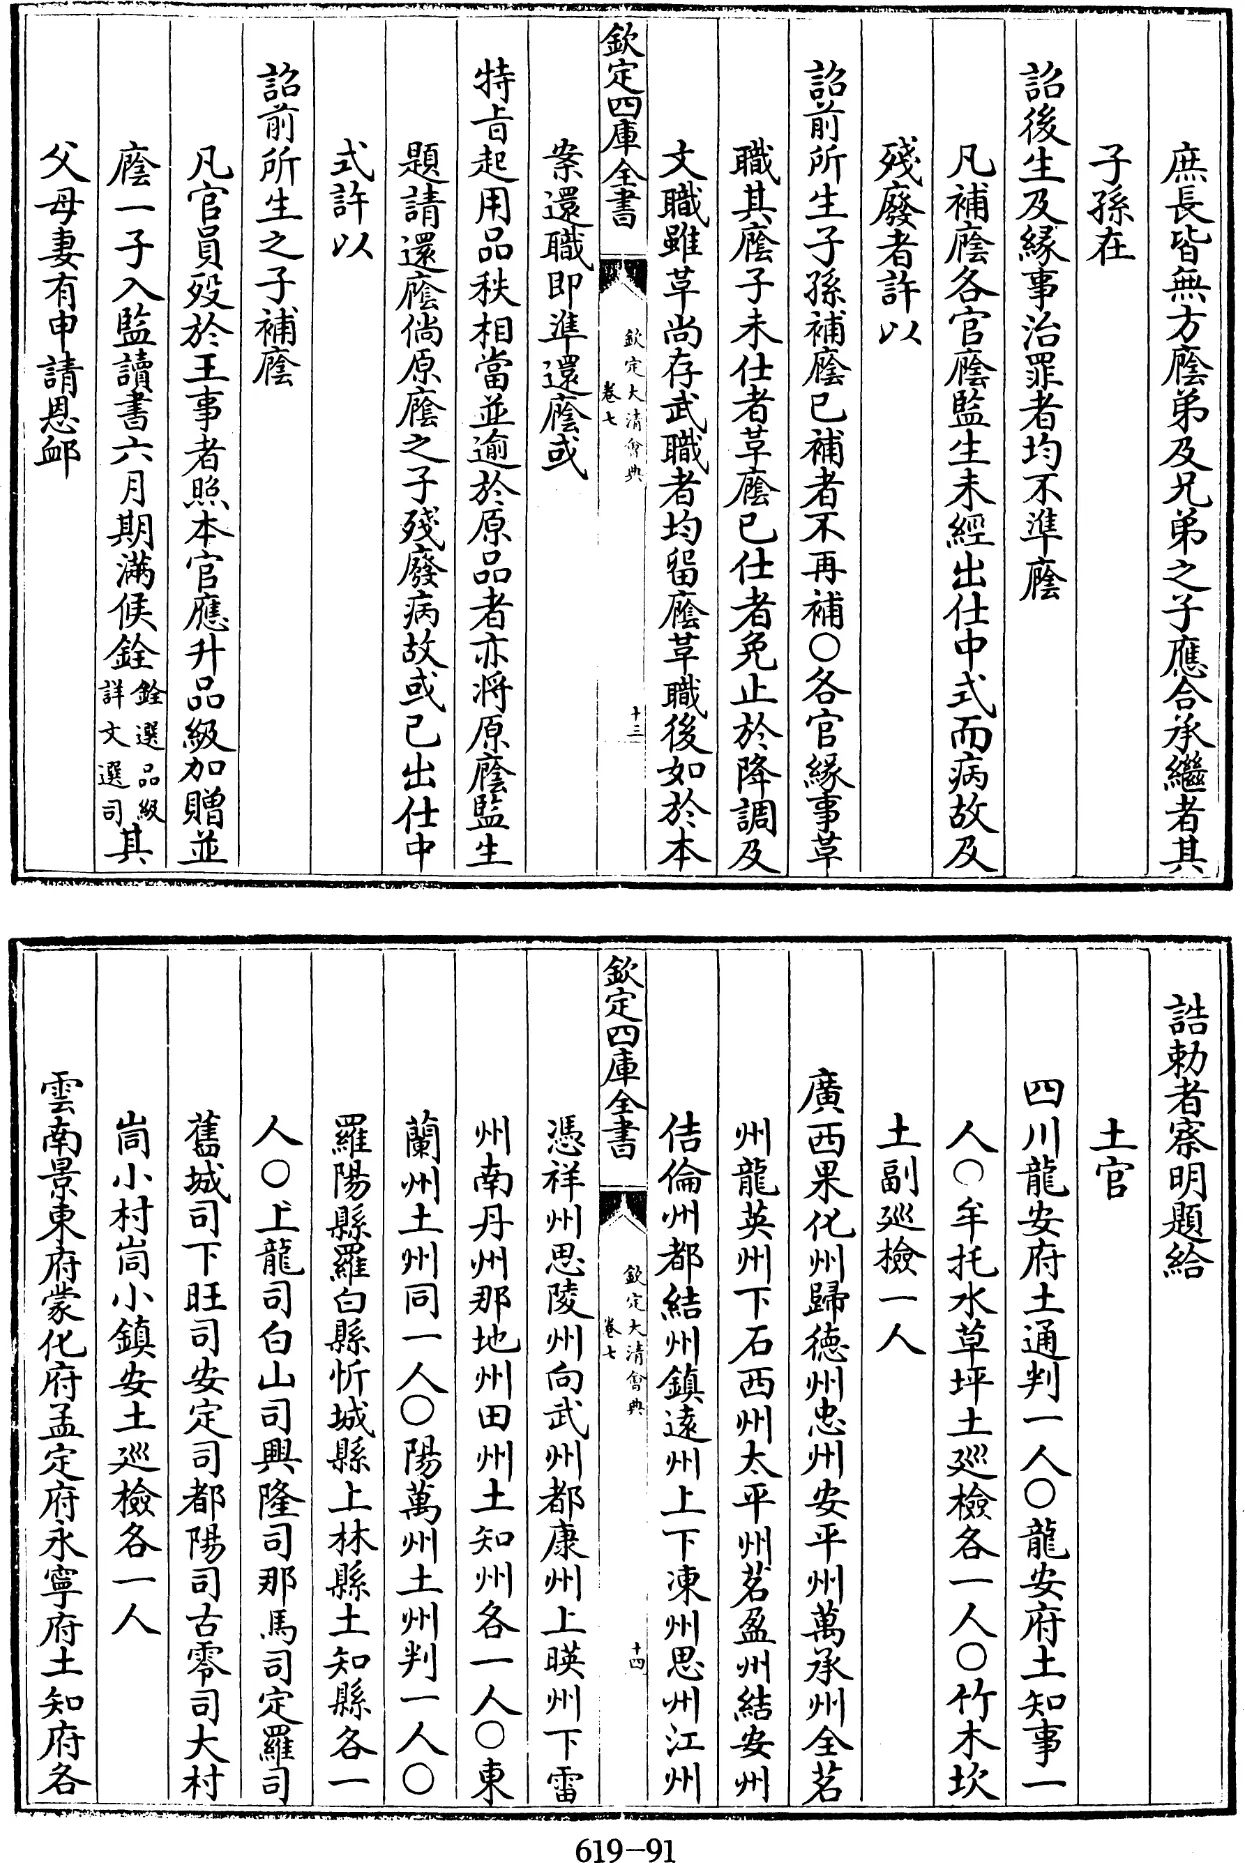 庶長皆無方廕弟及兄弟之子應合承繼者其
子孫在
詔後生及縁事治罪者均不準廕
凡補廕各官廕監生未經出仕中式而病故及
殘廢者許以
詔前所生子孫補廕已補者不再補〇各官緣事革
職其廕子未仕者革廕已仕者免止於降調及
文職雖革尚存武職者均留廕革職後如於本
欽定四庫全書
欽定大清會典
卷七
十三
案還職即準還廕或
特㫖起用品秩相當並逾於原品者亦將原廕監生
題請還廕倘原廕之子殘廢病故或已出仕中
式許以
詔前所生之子補廕
凡官員殁於王事者照本官應升品級加贈並
廕一子入監讀書六月期滿候銓銓選品級詳文選司其
父母妻有申請恩䘏
誥勅者察明題給
土官
四川龍安府土通判一人〇龍安府土知事一
人〇牟托水草坪土巡檢各一人〇竹木坎
土副巡檢一人
廣西果化州歸德州忠州安平州萬承州全茗
州龍英州下石西州太平州茗盈州結安州
佶倫州都結州鎮逺州上下凍州思州江州
欽定四庫全書
欽定大清會典
卷七
十四
憑祥州思陵州向武州都康州上暎州下雷
州南丹州那地州田州土知州各一人〇東
蘭州土州同一人〇陽萬州土州判一人〇
羅陽縣羅白縣忻城縣上林縣土知縣各一
人〇上龍司白山司興隆司那馬司定羅司
舊城司下旺司安定司都陽司古零司大村
峝小村峝小鎮安土巡檢各一人
雲南景東府蒙化府孟定府永寧府土知府各
619-91